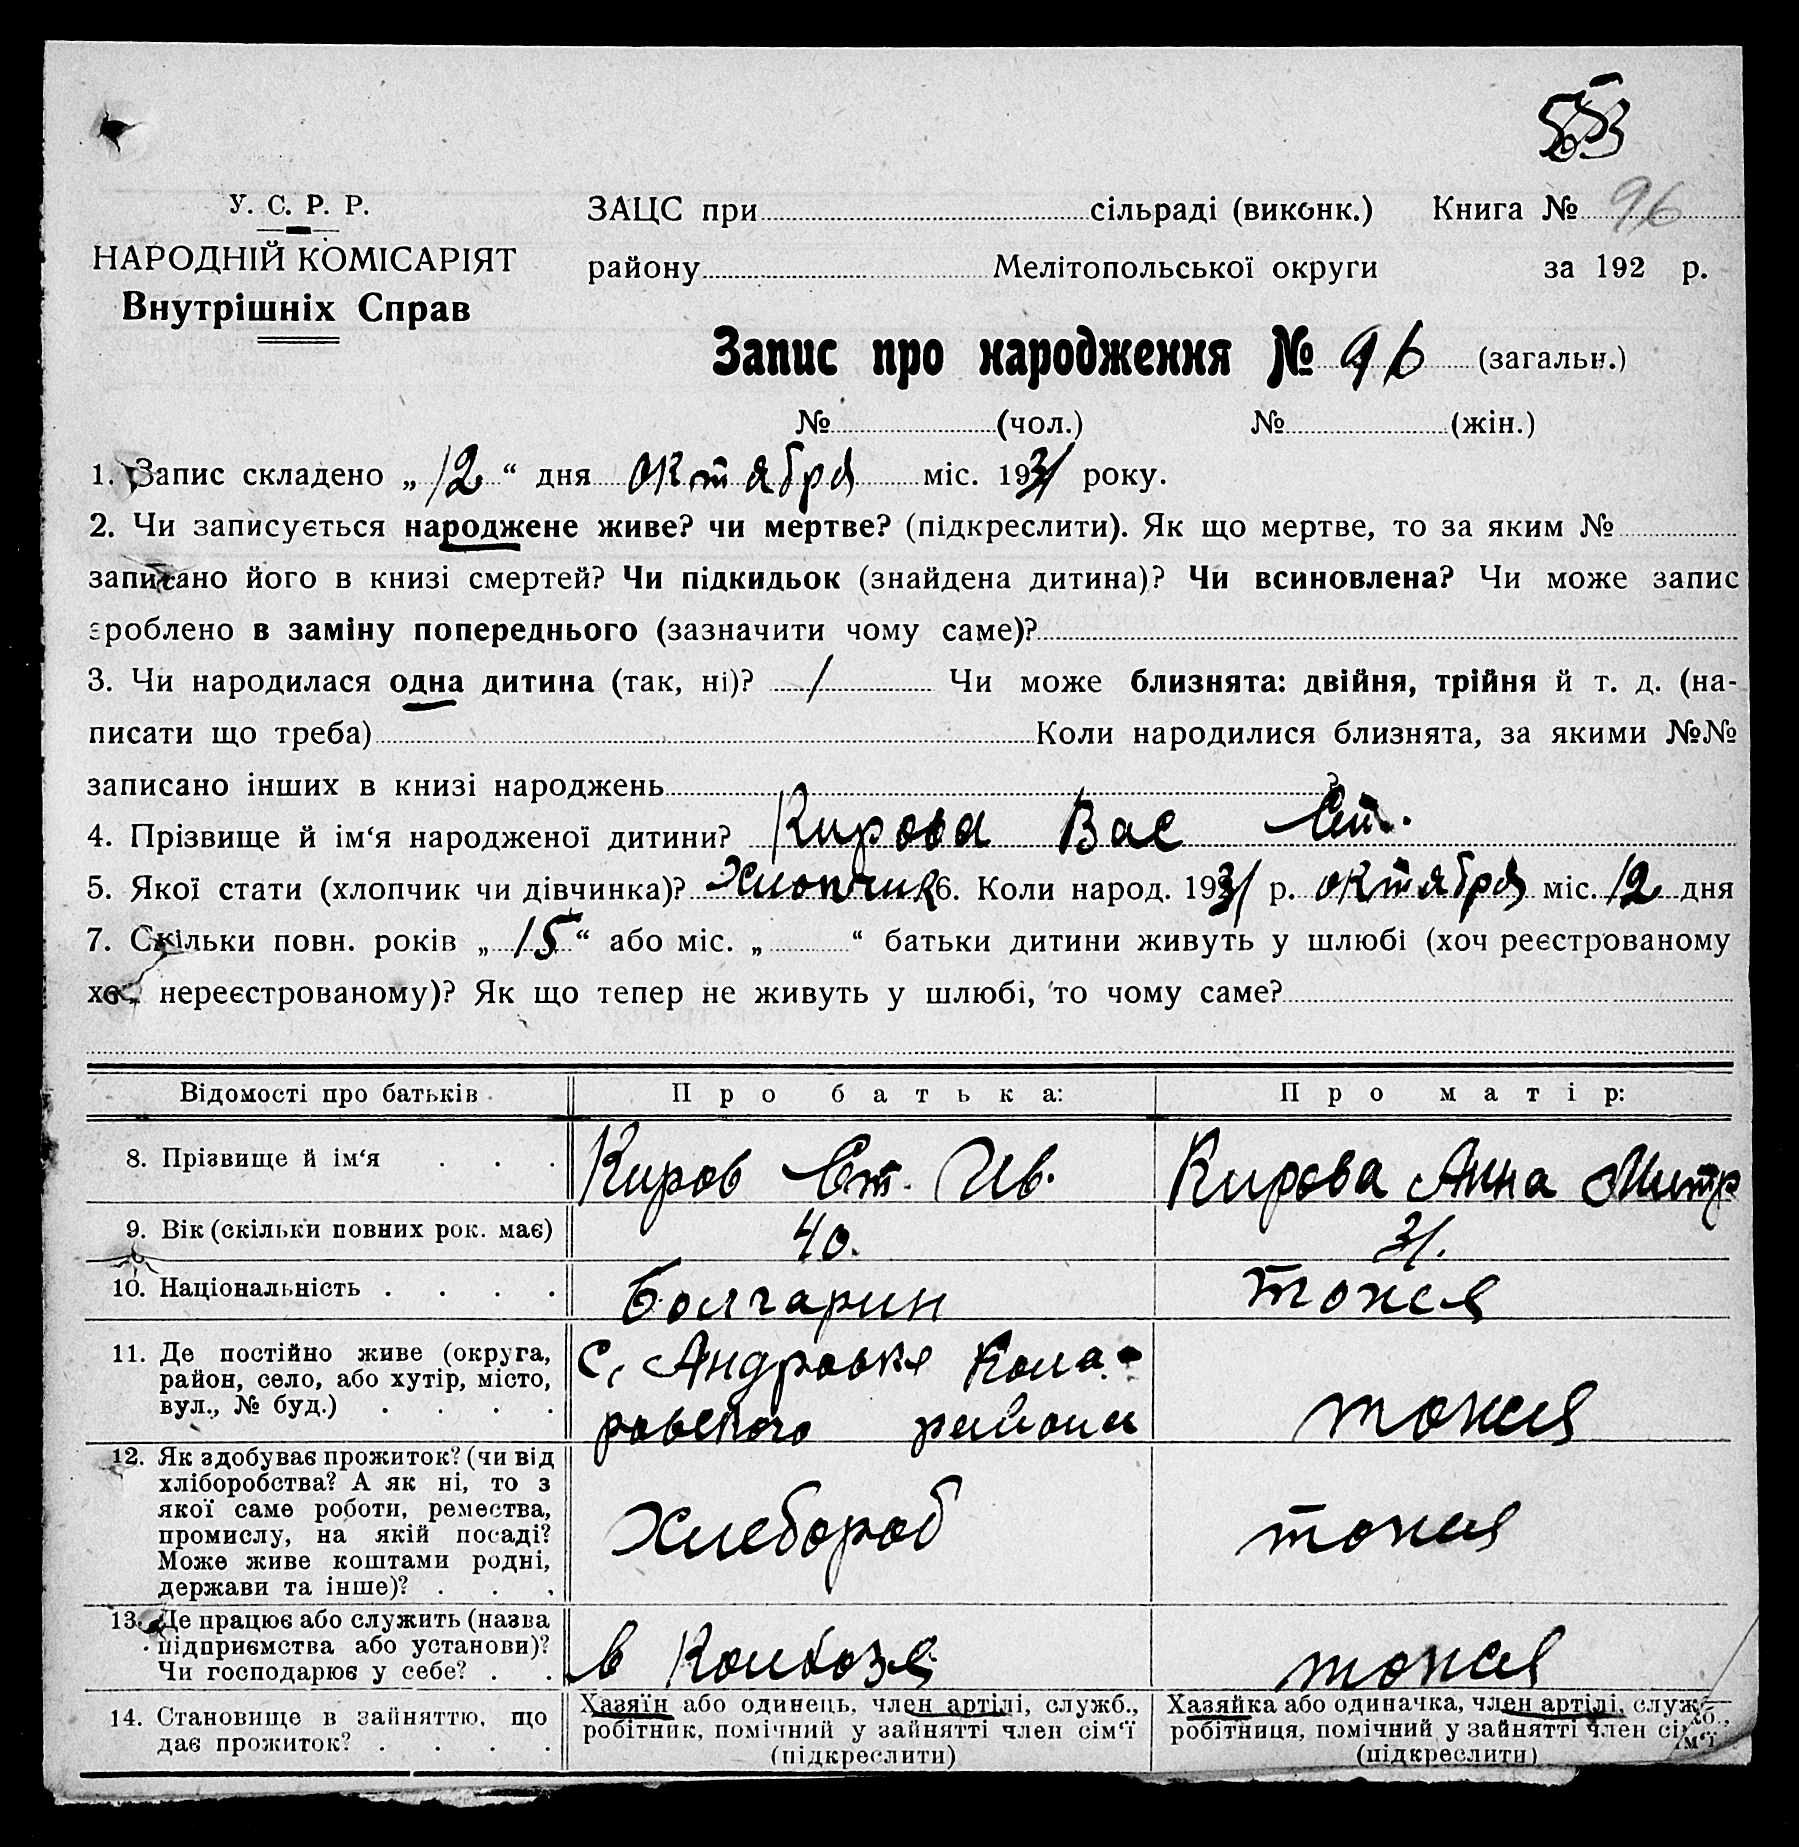 553
У. С. Р. Р.
НАРОДНІЙ КОМІСАРІЯТ
Внутрішніх Справ
ЗАЦС при сільраді (виконк.) Книга № 96
району Мелітопольської округи за 192 р.
Запис про народження № 96 (загальн.)
№ (чол.) № (жін.)
1. Запис складено „12“ дня октября міс. 1931 року.
2. Чи записується народжене живе? чи мертве? (підкреслити). Як що мертве, то за яким №
записано його в книзі смертей? Чи підкидьок (знайдена дитина)? Чи всиновлена? Чи може запис
зроблено в заміну попереднього (зазначити чому саме)?
3. Чи народилася одна дитина (так, ні)? 1 Чи може близнята: двійня, трійня й т. д. (на-
писати що треба) Коли народилися близнята, за якими №№
записано інших в книзі народжень
4. Прізвище й ім‘я народженої дитини? Кирова Вас Ст.
5. Якої стати (хлопчик чи дівчинка)? Хлопчик 6. Коли народ. 1931 р. октября міс. 12 дня
7. Скільки повн. років „15“ або міс. „ “ батьки дитини живуть у шлюбі (хоч реєстрованому
хоч нереєстрованому)? Як що тепер не живуть у шлюбі, то чому саме?
Відомості про батьків Про батька: Про матір:
8. Прізвище й ім‘я . . . Киров Ст. Ив. Кирова Анна Митр
9. Вік (скільки повних рок. має) 40. 31.
10. Національність . . . . Болгарин тоже
11. Де постійно живе (округа,
район, село, або хутір, місто,
вул., № буд.) . . . .
с. Андровке Кола-
ровского района
тоже
12. Як здобуває прожиток? (чи від
хліборобства? А як ні, то з
якої саме роботи, ремества,
промислу, на якій посаді?
Може живе коштами родні,
держави та інше)? . . .
Хлебороб
тоже
13. Де працює або служить (назва
підприємства або установи)?
Чи господарює у себе? . .
в Колхозе
тоже
14. Становище в зайняттю, що
дає прожиток? . . . .
Хазяїн або одинець, член артілі, служб.,
робітник, помічний у зайнятті член сім‘ї
(підкреслити)
Хазяйка або одиначка, член артілі, служб.,
робітниця, помічний у зайнятті член сім‘ї
(підкреслити)